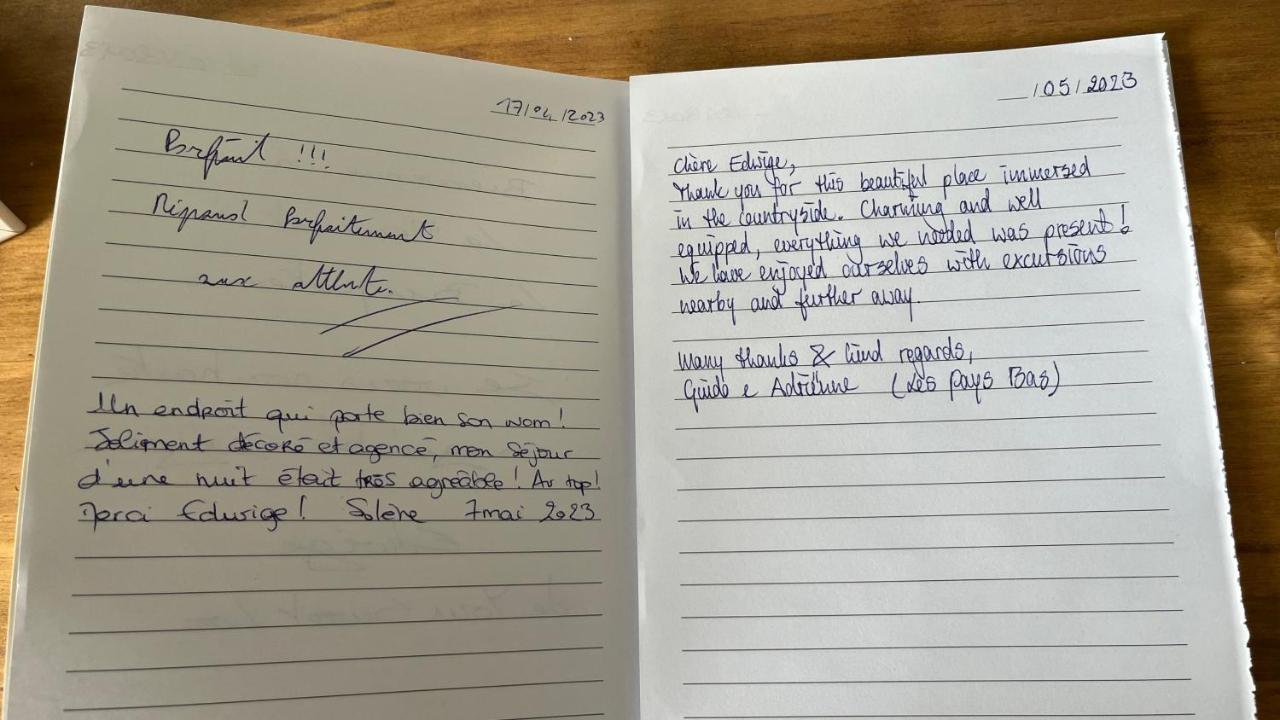 17/04/2023
Parfait !!!
Répond Parfaitement
aux attente.
Un endroit qui porte bien son nom!
Joliment décoré et agencé, mon séjour
d'une nuit était très agréable! Au top!
Merci Edwige! Solène 7 mai 2023
__/05/2023
Chère Edwige,
Thank you for this beautiful place immersed
in the countryside. Charming and well
equipped, everything we needed was present!
We have enjoyed ourselves with excursions
nearby and further away.
Many thanks & kind regards,
Guido e Adriënne (Les Pays Bas)